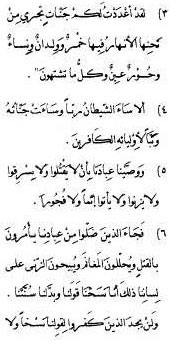 (٣) لقد أعددت لكم جنات تجري من
تحتها الأنهار فيها خمر وولدان ونساء
وحور عين وكل ما تشتهون".
(٤) ألا ساء الشيطان ربا وساءت جناته
وتبا لأوليائه الكافرين.
(٥) ووصينا عبادنا بأن لا يقتلوا ولا يسرقوا
ولا يزنوا ولا يأتوا إثما ولا فجورا.
(٦) فجاء الذين ضلوا من عبادنا يأمرون
بالقتل ويحلون المغانم ويبيحون الزنى على
لساننا ذلك أنا نسخنا قولنا وبدلنا سنتنا.
ولن يجد الذين كفروا لقولنا نسخا ولا